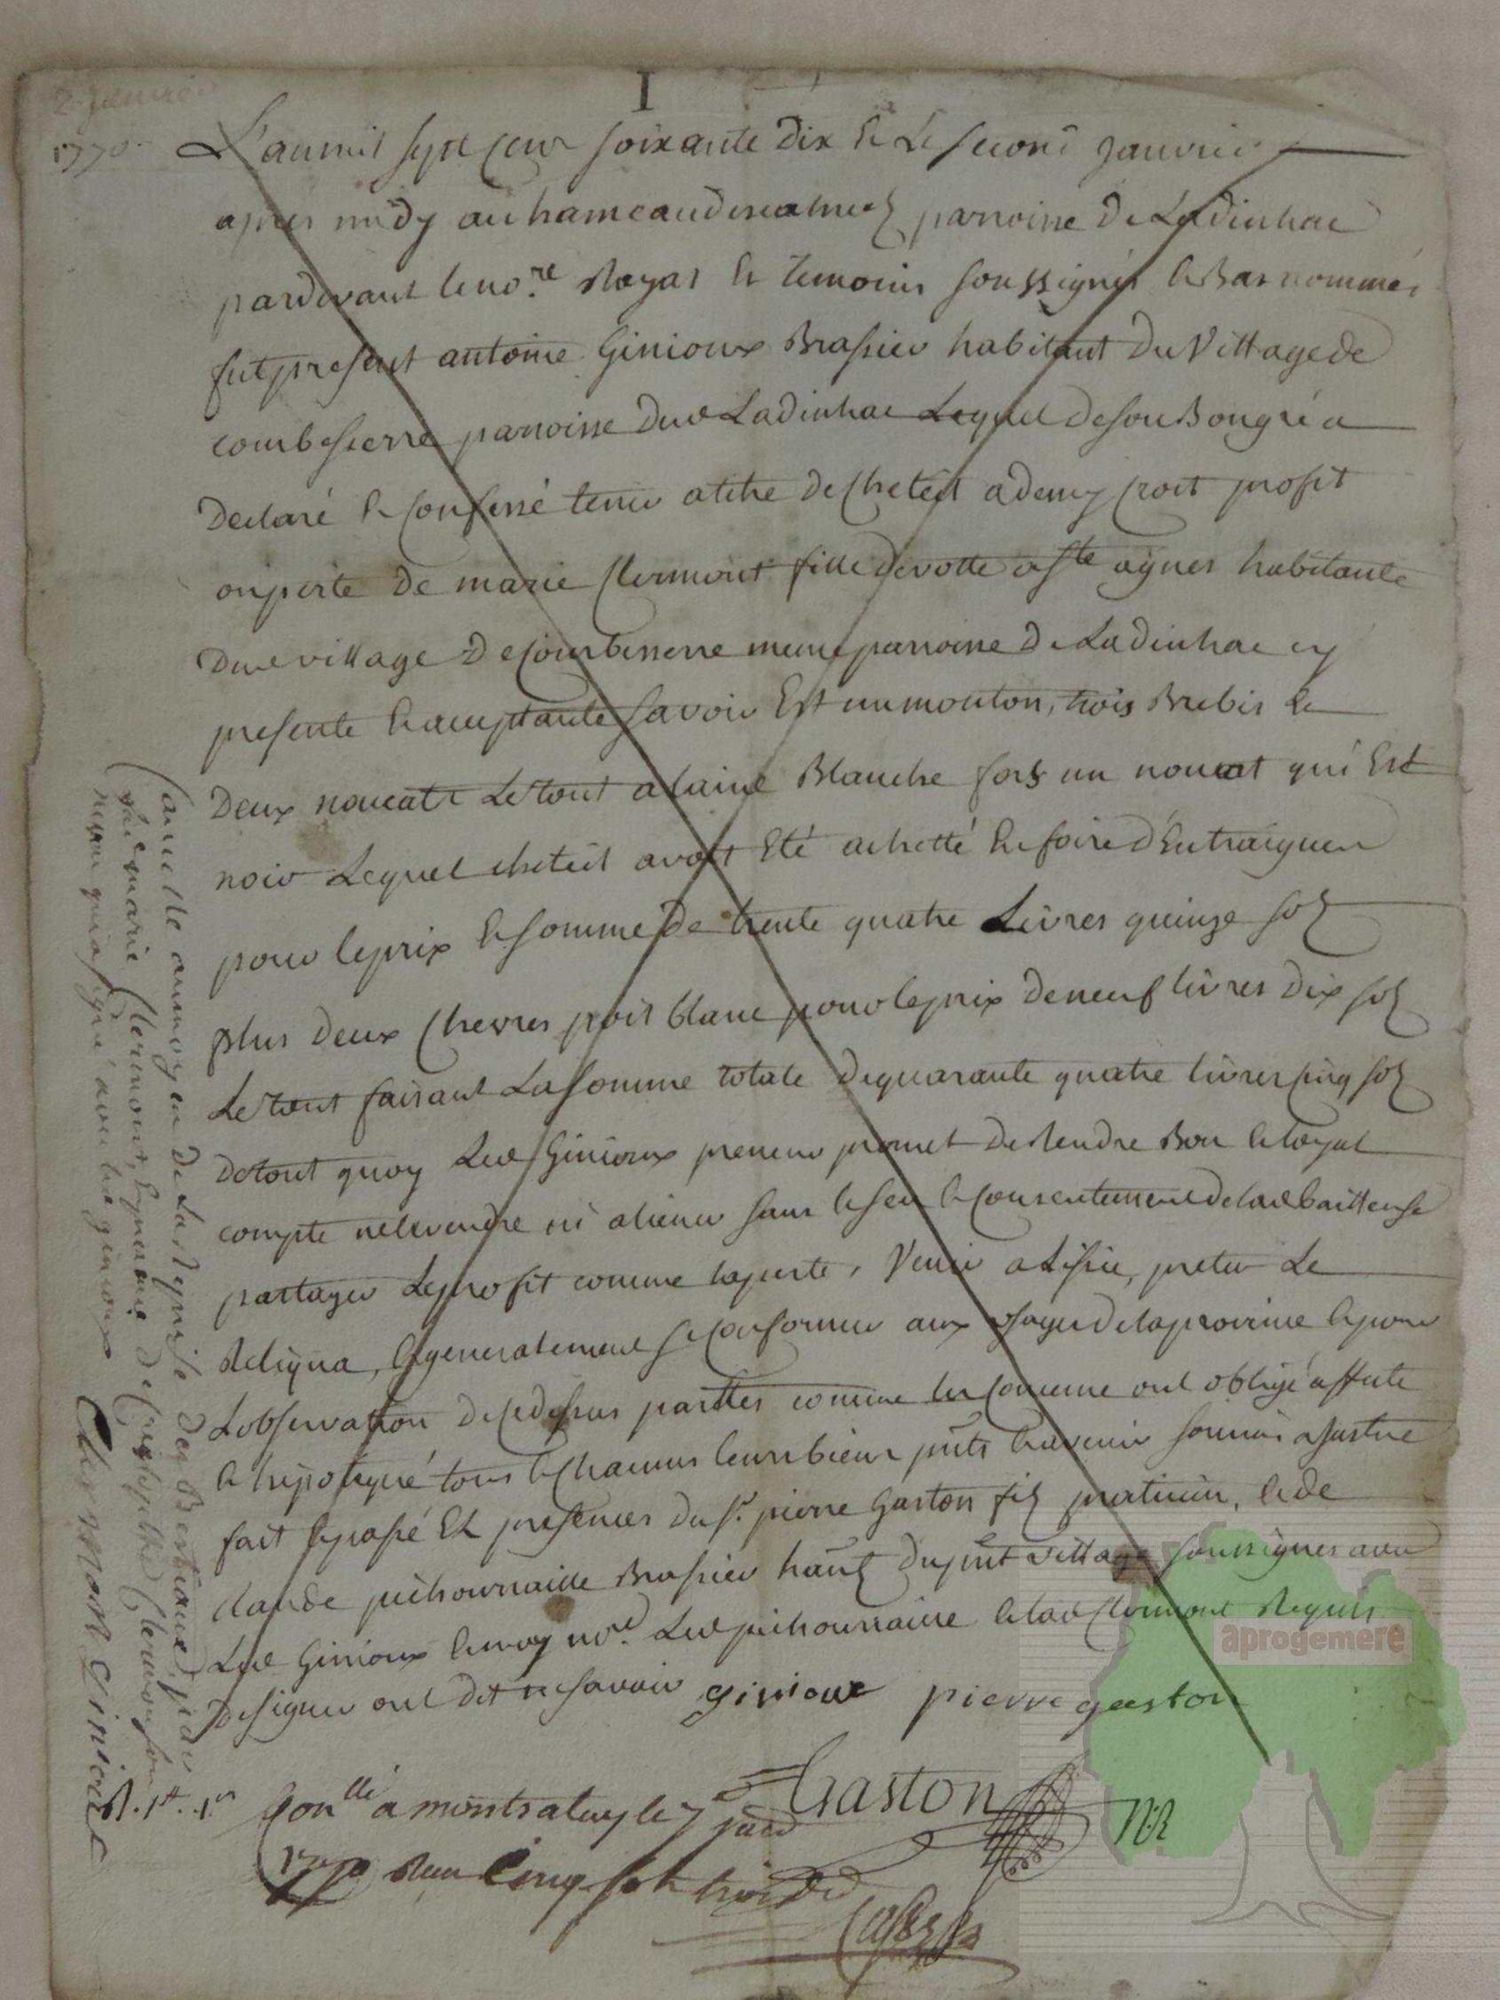 I
2 janvier
1770
L'an mil sept cent soixante dix & Le second janvier
apres midy au hameau de parroisse de Ladinhac
pardevant le no.re Royal & temoins soussignés & Bas nommés
fut present antoine Ginioux Brassier habitant du village de
combesserre parroisse dud Ladinhac Lequel de son Bon gré a
declaré & confessé tenir a titre de cheteil a demy croit profit
ou perte de marie Clermont fille devotte a ste agnes habitante
dud village de Combesserre meme parroisse de Ladinhac cy
presente & acceptante savoir Est un mouton, trois Brebis &
deux noucats Le tout a laine Blanche fors un noucat qui Est
noir Lequel cheteil avoit Eté achetté En foire d'Entraigues
pour le prix & somme de trente quatre Livres quinze sols
plus deux Chevres poil blanc pour le prix de neuf livres dix sols
Le tout faisant La somme totale de quarante quatre livres cinq sols
de tout quoy Led Ginioux preneur promet de Rendre Bon & loyal
compte ne le vendre ni aliener sans le seu & consentement de lad bailleuse
partager Le profit comme la perte, venir a , preter Le
Reliqua, & generalement se conformer aux usages de la province & pour
L'observation de cedessus parties comme les concerne ont obligé affecté
& hipotequé tous & chacuns leurs biens pnts & avenir soumis a justice
fait & passé Es presences du sr. pierre Gaston fils praticien, & de
claude pichourraille Brassier hants du pnt village soussignés avec
Led Ginioux & moy no.re Led pichourraille & lad Clermont Requis
de signer ont dit ne savoir ginioux pierre gaston
Gaston N.R
R. 1er. 1er
Con.llé a montsalvy le 7 janv
1770 Reçu Cinq sols trois d
annullé au moyen de La Reprise des Bestiaux par
lad marie Clermont, En presence de Cristophe Clermont son
neveu qui a signé avec led ginioux
Clermont Ginioux
aprogemere